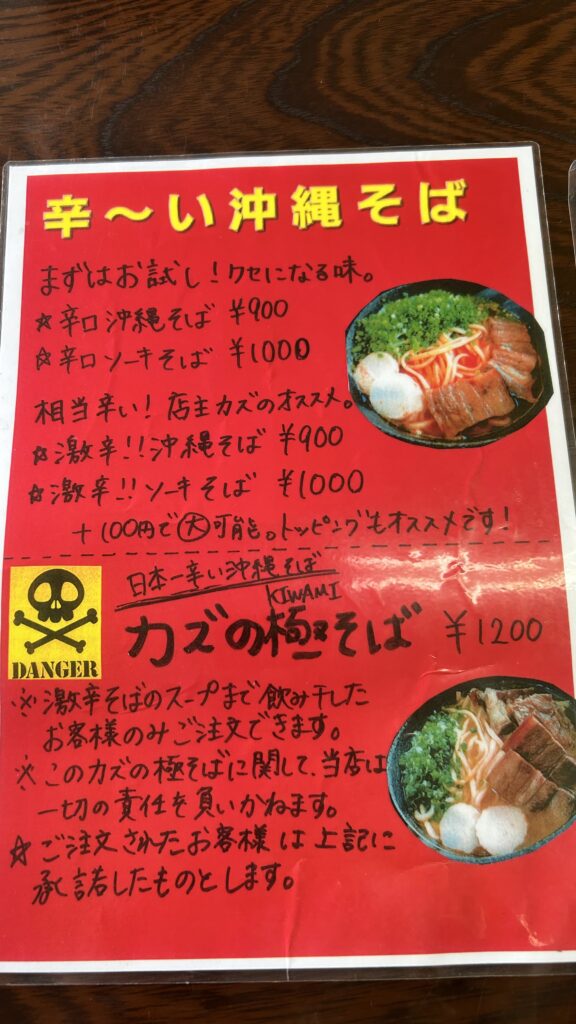 辛〜い沖縄そば
まずはお試し!クセになる味。
☆辛口沖縄そば ¥900
☆辛口ソーキそば ¥1000
相当辛い!店主カズのオススメ。
☆激辛!!沖縄そば ¥900
☆激辛!!ソーキそば ¥1000
+100円で大可能。トッピングもオススメです!
日本一辛い沖縄そば
KIWAMI
カズの極そば ¥1200
DANGER
※激辛そばのスープまで飲み干した
お客様のみご注文できます。
※このカズの極そばに関して、当店は
一切の責任を負いかねます。
☆ご注文されたお客様は上記に
承諾したものとします。